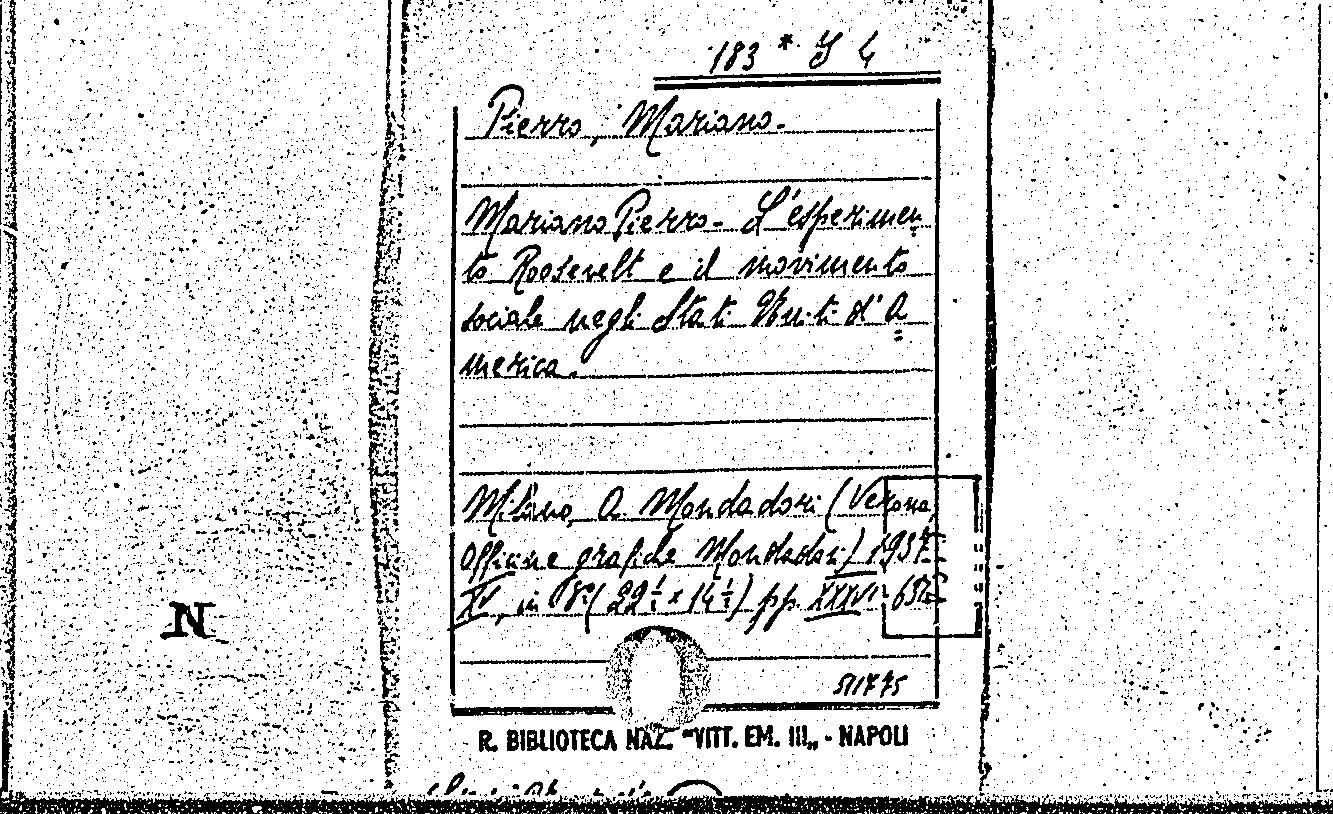 183 * J 4
Pierro, Mariano.
Mariano Pierro. L'esperimen
to Roosevelt e il movimento
sociale negli Stati Uniti d'A
merica.
Milano, A. Mondadori (Verona,
Officine grafiche Mondadori) 1937
XV, in 8°( 22½ x 14½) pp. XXXVI-
511775
R. BIBLIOTECA NAZ. "VITT. EM. III„ - NAPOLI
N